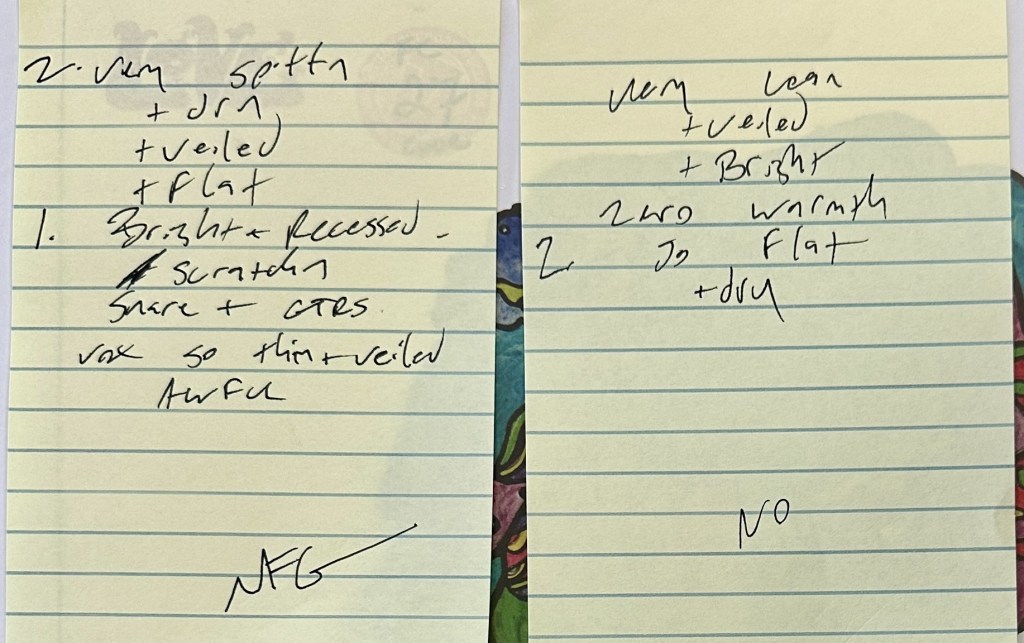 2. very spitty
+ dry
+ veiled
+ Flat
1. Bright + Recessed.
scratchy
Snare + GTRS.
vox so thin + veiled
AWFUL
NFG
very lean
+ veiled
+ Bright
zero warmth
2. So Flat
+ dry
NO